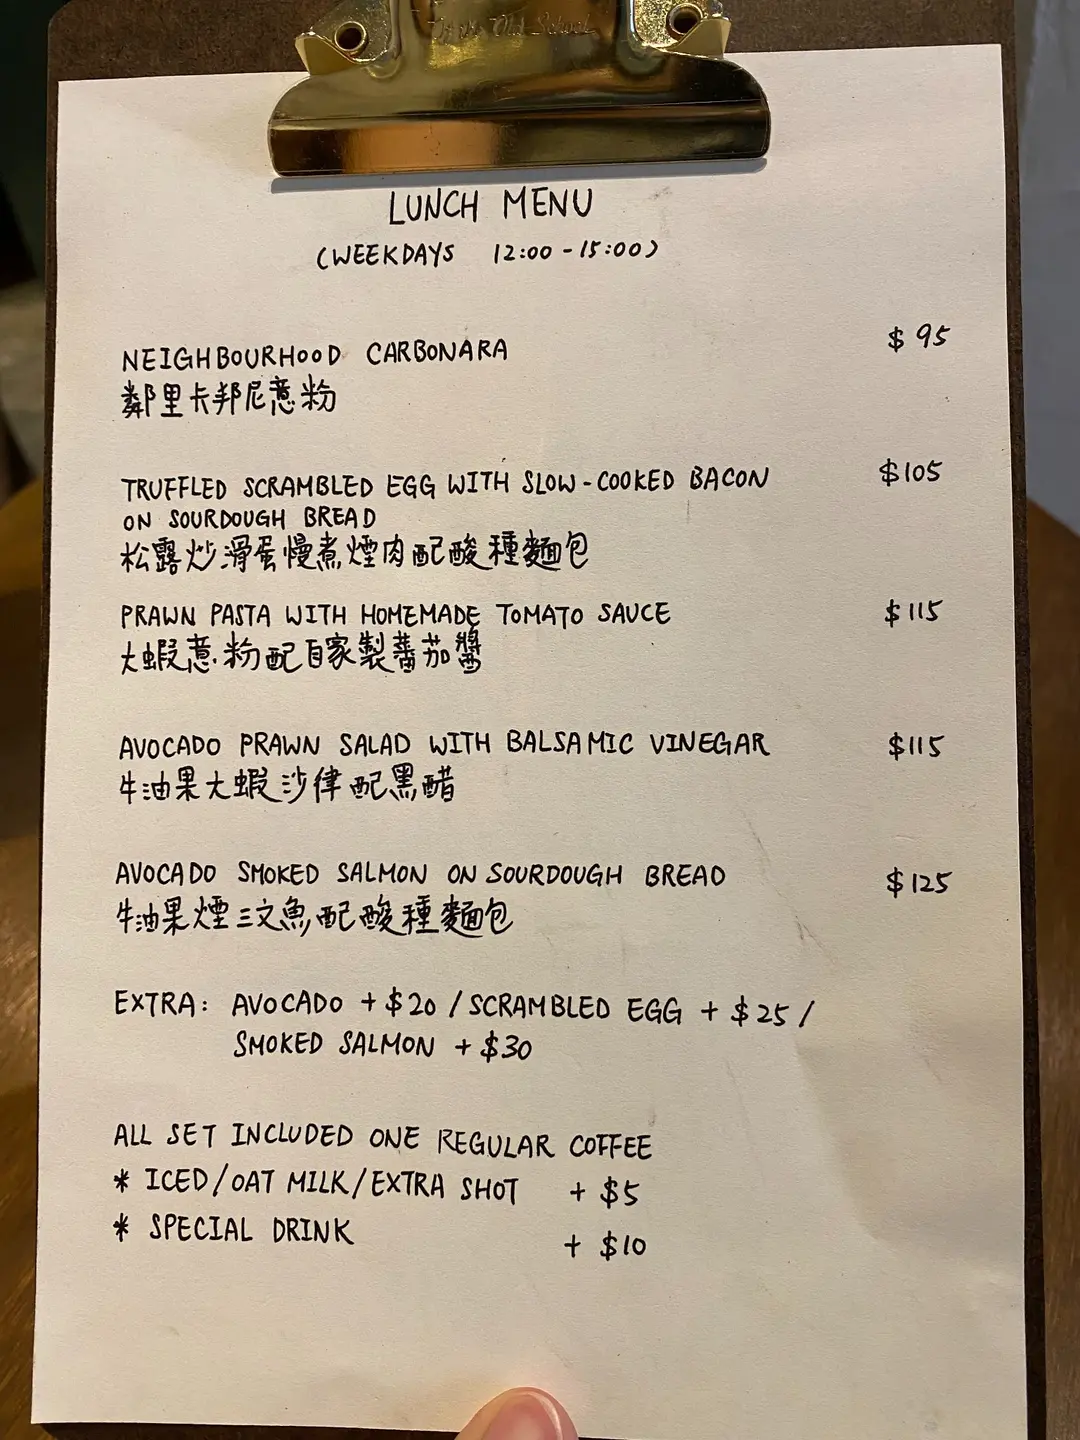 To the Old School
LUNCH MENU
(WEEKDAYS 12:00-15:00)
NEIGHBOURHOOD CARBONARA $95
鄰里卡邦尼意粉
TRUFFLED SCRAMBLED EGG WITH SLOW-COOKED BACON $105
ON SOURDOUGH BREAD
松露炒滑蛋慢煮煙肉配酸種麵包
PRAWN PASTA WITH HOMEMADE TOMATO SAUCE $115
大蝦意粉配自家製蕃茄醬
AVOCADO PRAWN SALAD WITH BALSAMIC VINEGAR $115
牛油果大蝦沙律配黑醋
AVOCADO SMOKED SALMON ON SOURDOUGH BREAD $125
牛油果煙三文魚配酸種麵包
EXTRA: AVOCADO +$20 / SCRAMBLED EGG +$25 /
SMOKED SALMON +$30
ALL SET INCLUDED ONE REGULAR COFFEE
* ICED/OAT MILK/EXTRA SHOT +$5
* SPECIAL DRINK +$10